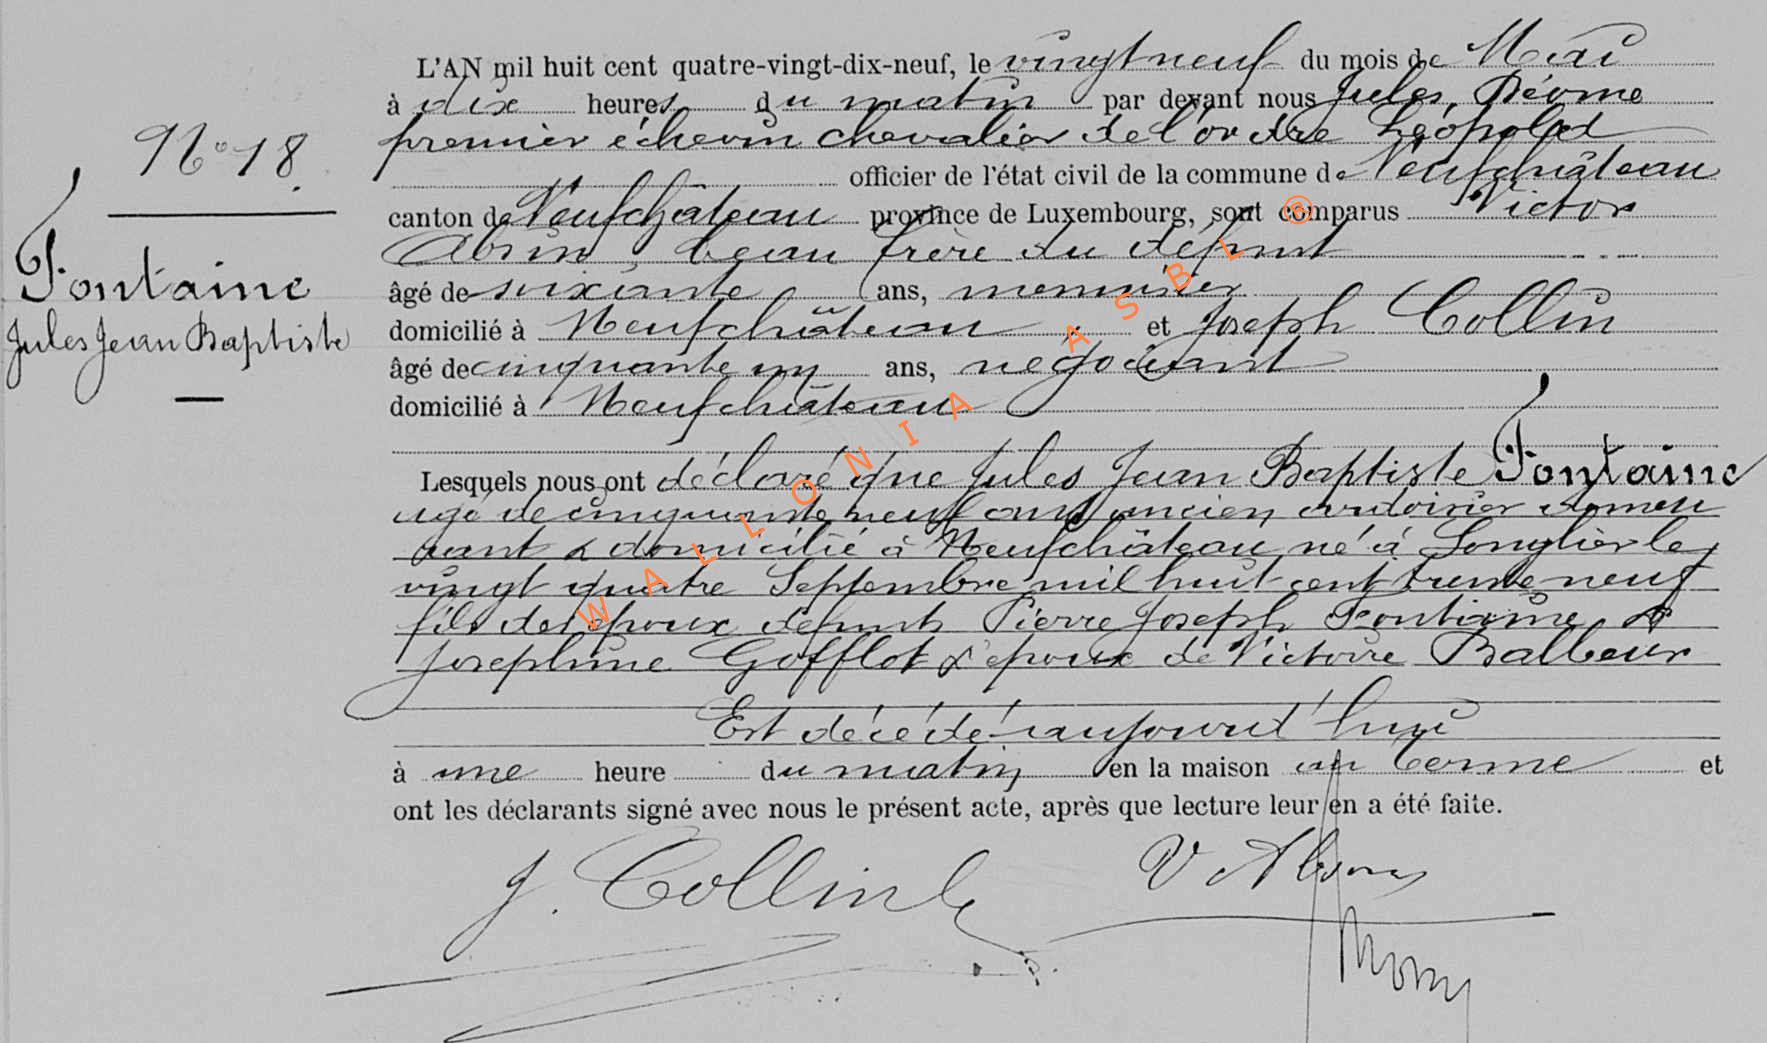 N° 18.
Fontaine
Jules Jean Baptiste
L'AN mil huit cent quatre-vingt-dix-neuf, le vingt neuf du mois de Mai
à dix heures du matin par devant nous Jules
premier échevin chevalier de l'ordre Léopold
officier de l'état civil de la commune de Neufchâteau
canton de Neufchâteau province de Luxembourg, sont comparus Victor
beau frère du défunt
âgé de soixante ans, menuisier
domicilié à Neufchâteau et Joseph Collin
âgé de cinquante un ans, négociant
domicilié à Neufchâteau
Lesquels nous ont déclaré que Jules Jean Baptiste Fontaine
agé de cinquante neuf ans ancien ardoisier demeu
rant & domicilié à Neufchâteau, né à Longlier le
vingt quatre Septembre mil huit cent trente neuf
fils des époux défunts Pierre Joseph Fontaine &
Josephine Gofflot & époux de Victoire Balbeur
Est décédé aujourd'hui
à une heure du matin en la maison au Terme et
ont les déclarants signé avec nous le présent acte, après que lecture leur en a été faite.
J. Collin
WALLONIA ASBL ®